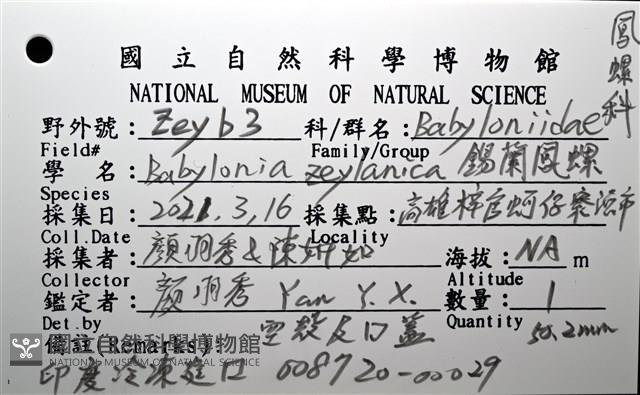 鳳螺科
國立自然科學博物館
NATIONAL MUSEUM OF NATURAL SCIENCE
野外號：Zeyb3 科/群名：Babyloniidae
Field# Family/Group
學 名：Babylonia zeylanica 錫蘭鳳螺
Species
採集日：2021.3,16 採集點：高雄梓官蚵仔寮漁市
Coll.Date Locality
採集者：顏羽秀&陳 海拔：NA m
Collector Altitude
鑑定者：顏羽秀 Yan Y. X. 數量：1
Det.by Quantity
空殼及口蓋 50.2mm
備註(Remarks):
國立自然科學博物館
NATIONAL MUSEUM OF NATURAL SCIENCE
印度冷凍進口 008720-00029